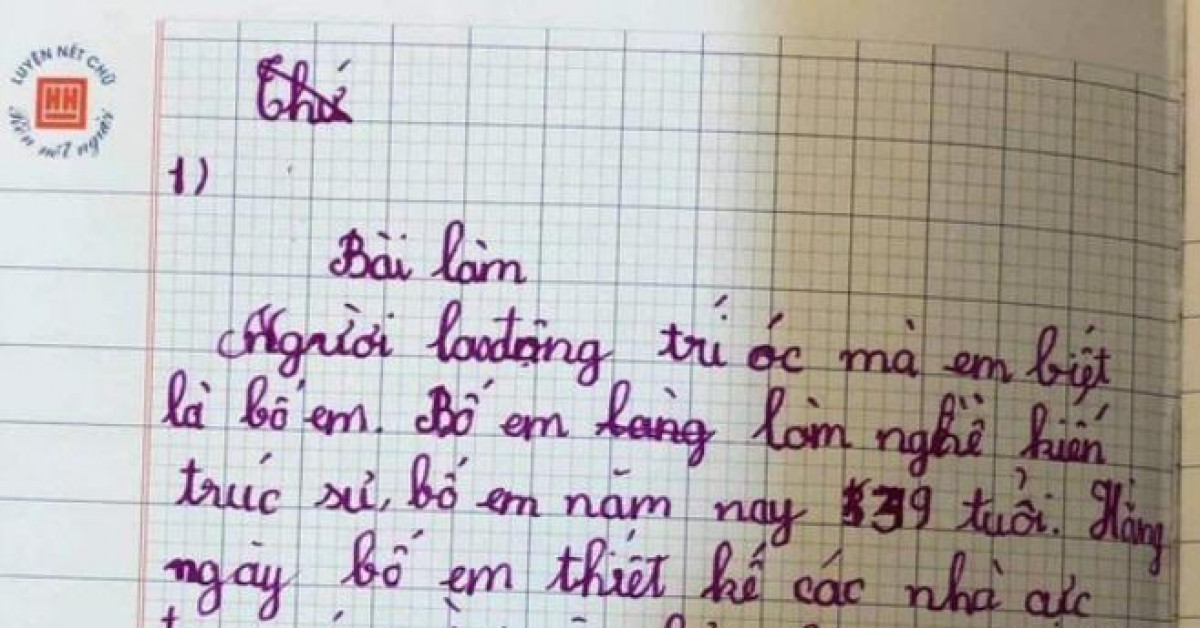 LUYỆN NÉT CHỮ
HH
Rèn nết người
Thứ
1)
Bài làm
Người lao động trí óc mà em biết
là bố em. Bố em làng làm nghề kiến
trúc sư, bố em năm nay 39 tuổi. Hằng
ngày bố em thiết kế các nhà